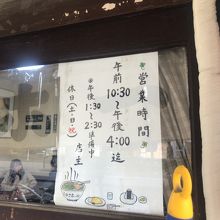 営業時間
午前
10:30
〜午後
4:00迄
※午後
1:30
〜
2:30
準備中
休日(土・日・祝)
店主